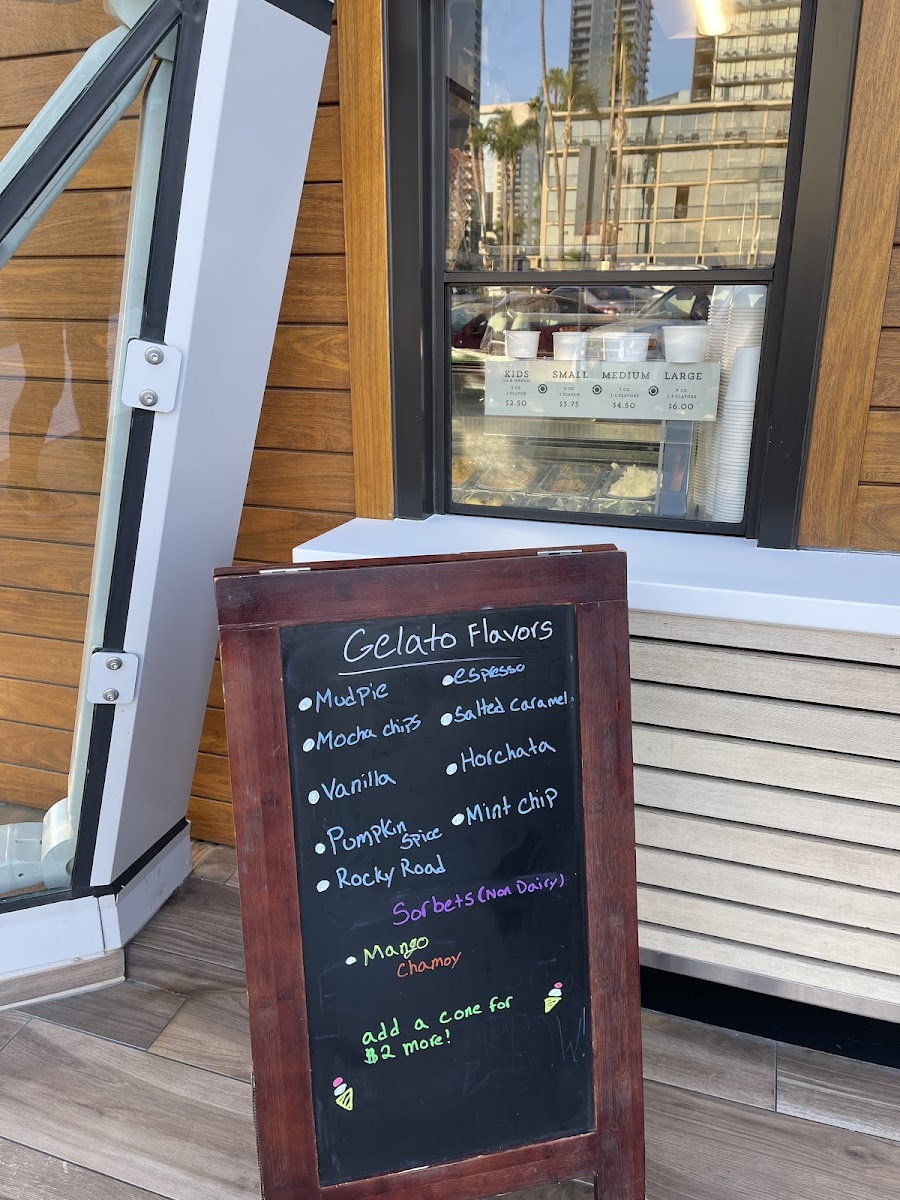 KIDS
SMALL
MEDIUM
LARGE
1 FLAVOR
$2.50
$3.75
$4.50
$6.00
Gelato Flavors
• Mudpie
• espresso
• Mocha chips
• Salted caramel
• Vanilla
• Horchata
• Pumpkin
Spice
• Mint chip
• Rocky Road
Sorbets (Non Dairy)
• Mango
Chamoy
add a cone for
$2 more!